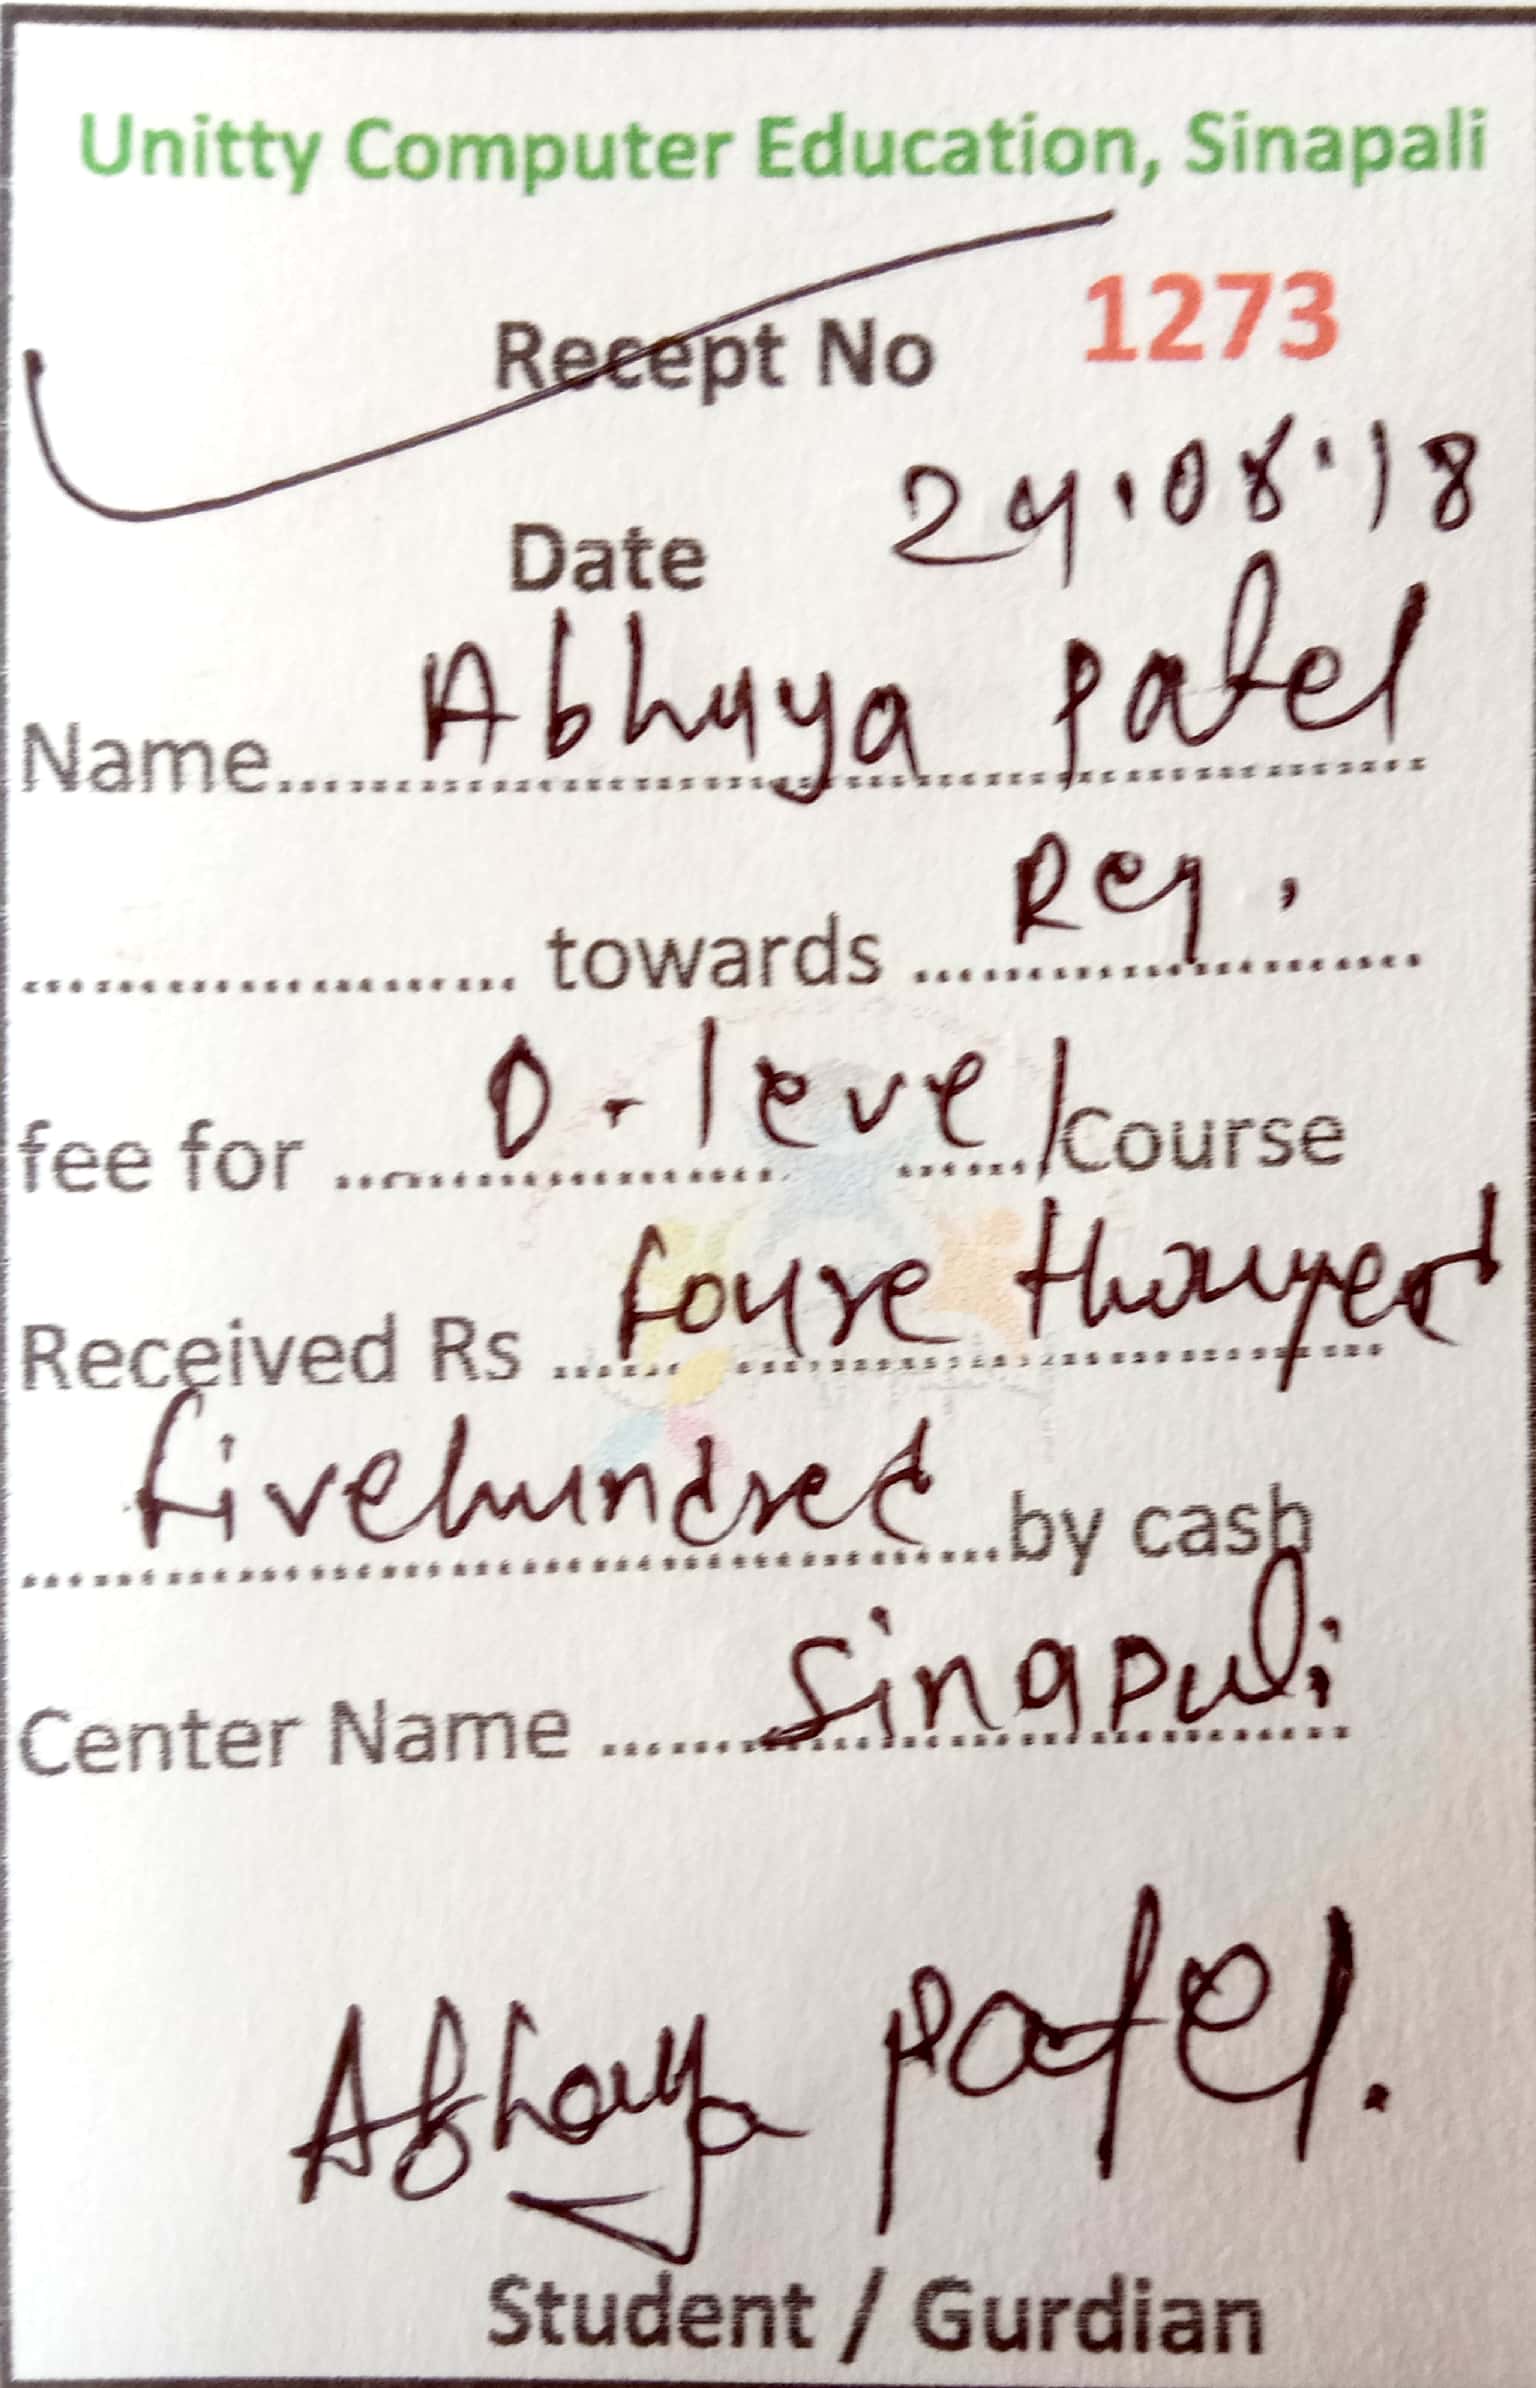 Unitty Computer Education, Sinapali
Recept No 1273
Date 24.08.18
Name Abhaya Patel
towards Reg.
fee for O-level Course
Received Rs foure
fivehundred by cash
Center Name Sinapali
Abhaya Patel.
Student / Gurdian